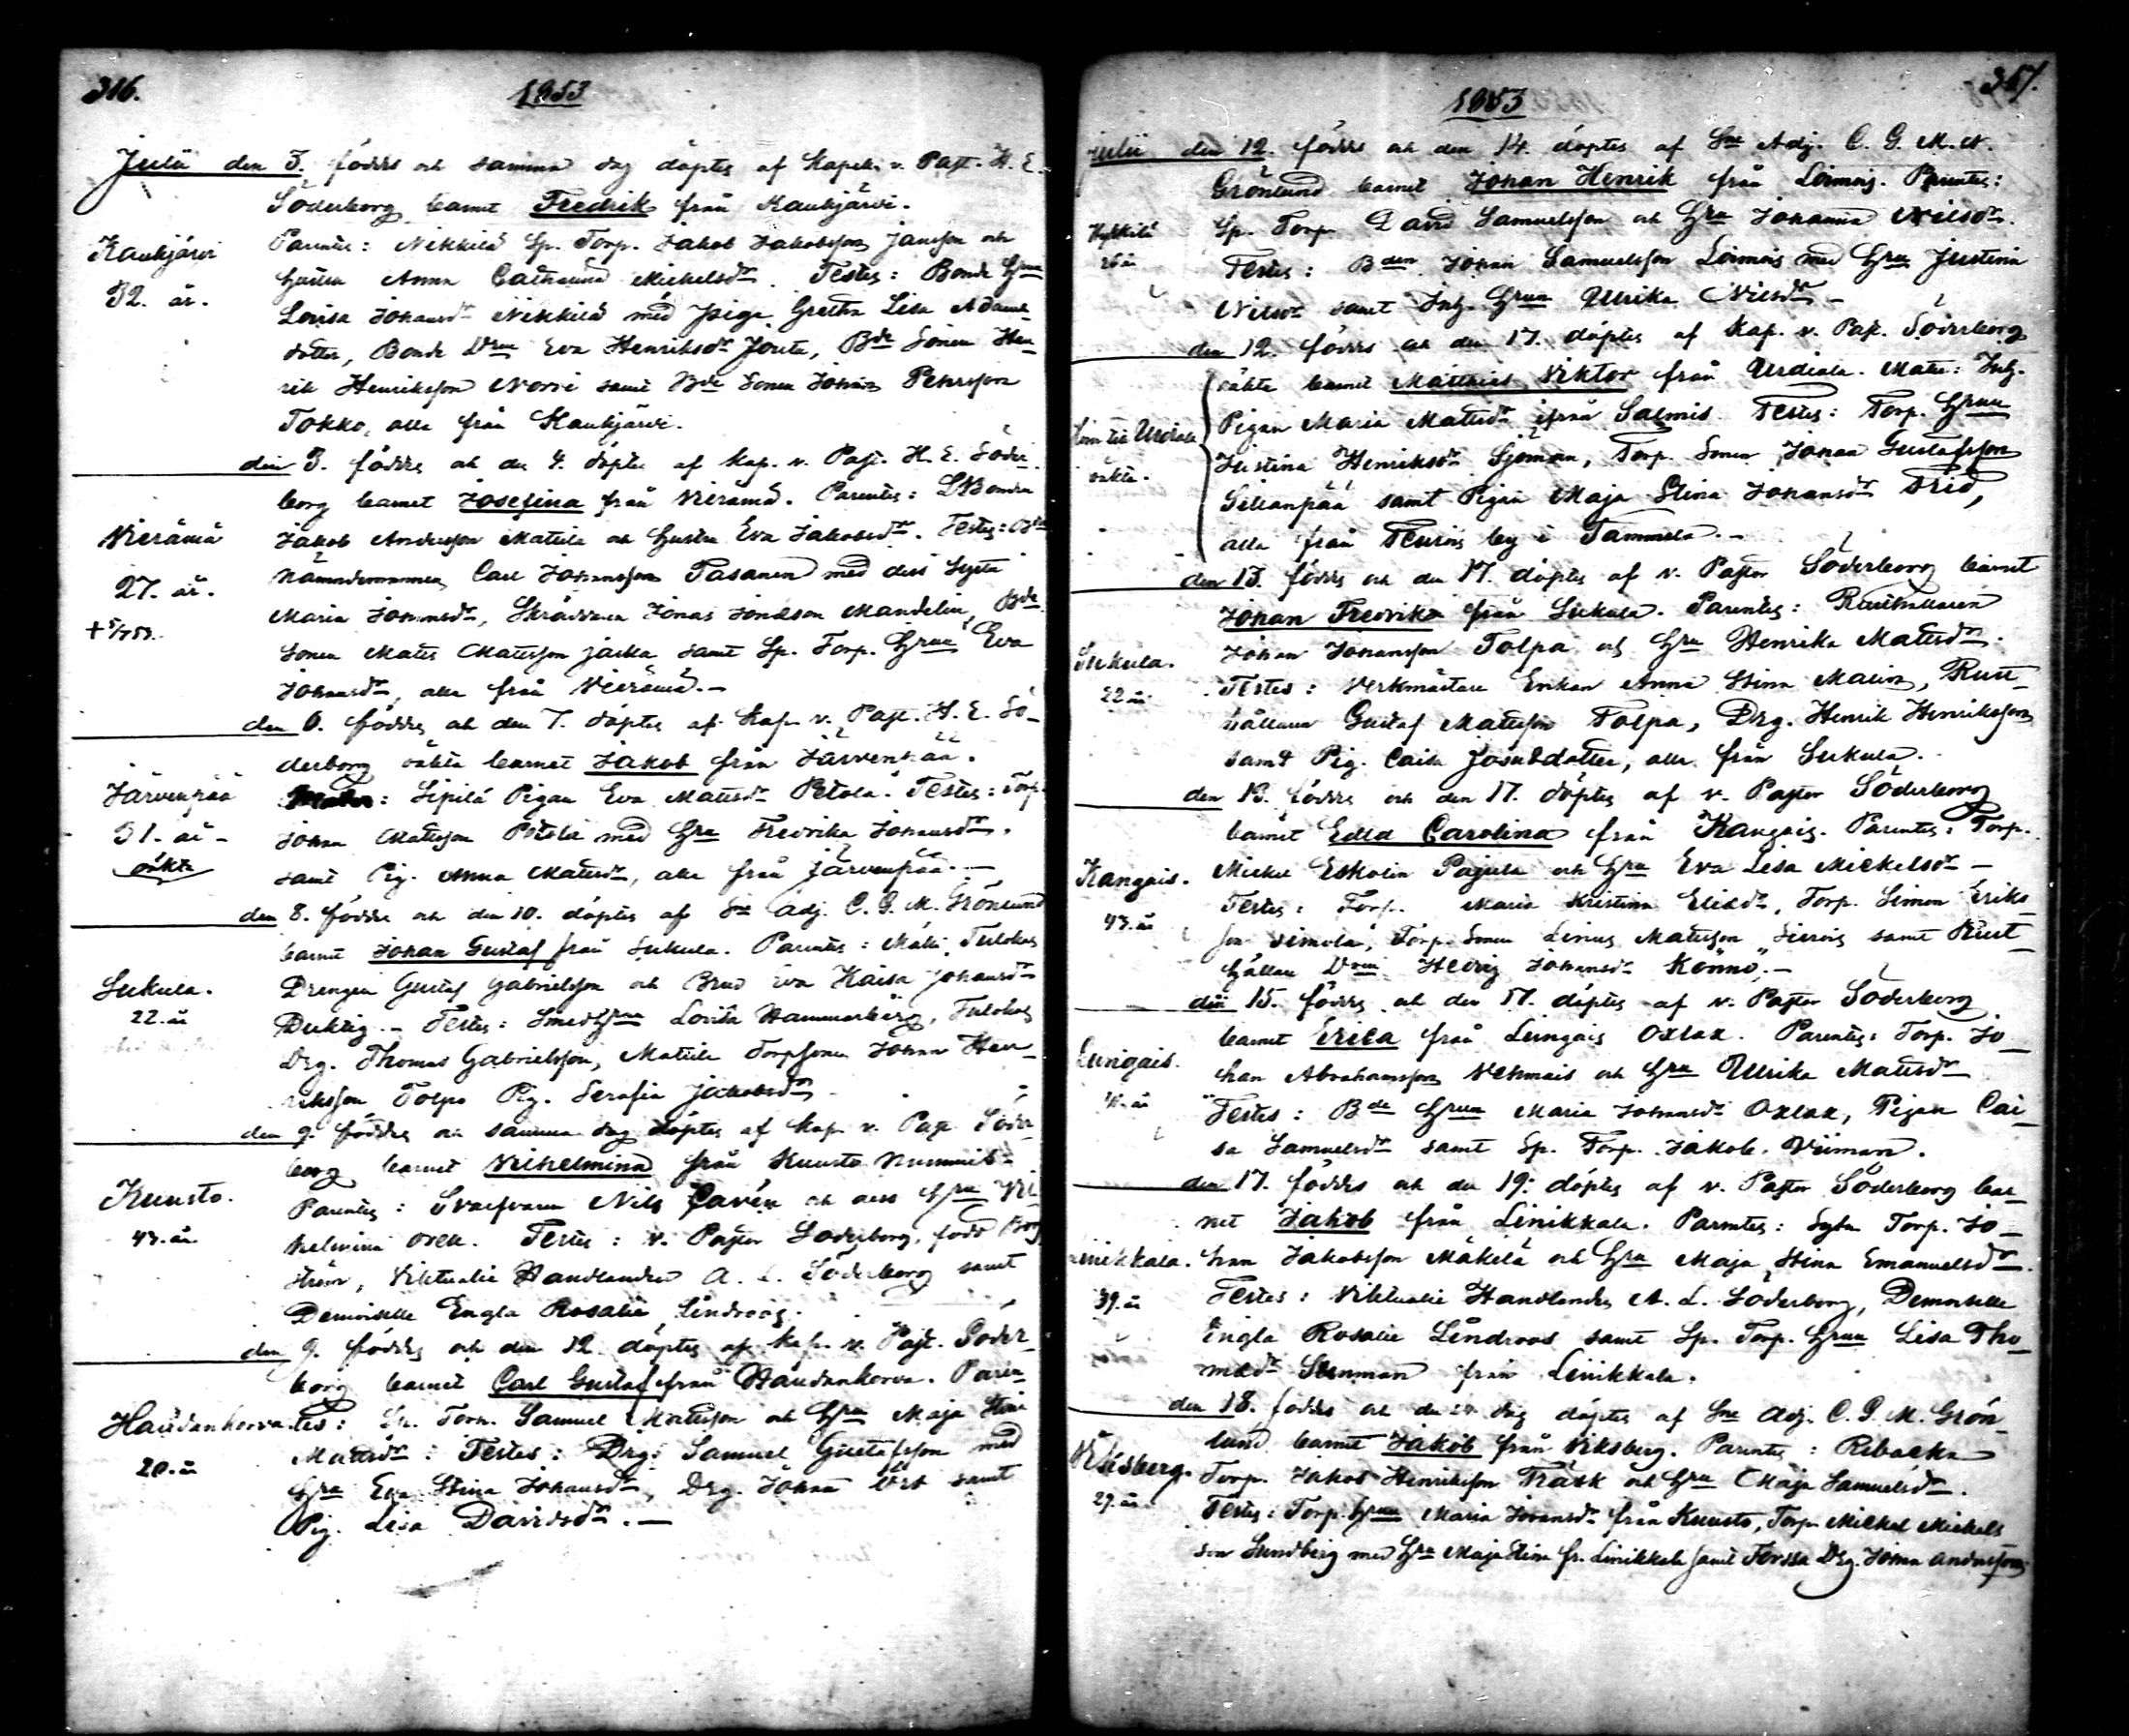 316.
1853
Julii den 3. föddes och samma dag döptes af Kapell. v. Past. H. E.
Söderborg barnet Fredrik från Kaukjärvi.
Kaukjärvi
32. år.
Parentes: Nikkilä Sp. Torp. Jakob Jakobsson Jansson och
hustru Anna Catharina Michelsdr. Testes: Bonde Hrun
Lovisa Johansdr Nikkilä med Piga Gretha Lisa Adams
dotter, Bonde Drn Eva Henriksdr Jouta, Bde Sonen Hen
rik Henriksson Norvi samt Bde Sonen Johan Pehrsson
Tokko, alla från Kaukjärvi.
den 3. föddes och den 4. döptes af Kap. v. Past. H. E. Söder
borg barnet Josefina från Vieremä. Parentes: LBonden
Vierämä
27. år.
+ 5/7 53.
Jakob Andersson Mattila och hustru Eva Jakobsdr. Testes:
Nämndemannen Carl Johansson Tasanen med dess Syster
Maria Johansdr, Skräddaren Jonas Jonasson Mandelin, Bde
Sonen Matts Mattsson Jaska samt Sp. Torp. Hrun Eva
Johansdr, alla från Vierämä.-
den 6. föddes och den 7. döptes af Kap. v. Past. H. E. Sö-
derborg oäkta barnet Jakob från Järvenpää.
Järvenpää
31. år-
oäkta
Mater: Sipilä Pigan Eva Mattsdr Petola. Testes: Torp.
Johan Mattsson Petola med Hru Fredrika Johansdr.
samt Pig. Anna Mattsdr, alla från Järvenpää.-
den 8. föddes och den 10. döptes af Sne Adj. C. G. M. Grönlund
barnet Johan Gustaf från Sukula. Parentes: Mäki Tulokas
Sukula.
22. år
Drengen Gustaf Gabrielsson och Brud Eva Kaisa Johansdr
Duktig.- Testes: Smed Hrun Lovisa Hammarberg, Tulokas
Drg. Thomas Gabrielsson, Mattila Torpsonen Johan Hen-
riksson Tolpo Pig. Serafia Jakobsdr
den 9. föddes och samma dag döptes af Kap. v. Past. Söder-
borg barnet Vilhelmina från Kuusto Nummila
Kuusto.
43. år.
Parentes: Svarfvaren Nils Pavén och dess Hru Vil
helmina Oren. Testes: v. Pastor Söderborg, född Borg
ström, Viktualie Handlanden A. L. Söderborg samt
Demoiselle Engla Rosalie Lindroos.
den 9. föddes och den 12. döptes af Kap. v. Past. Söder-
borg barnet Carl Gustaf från Haudankorva. Paren-
Haudankorva
20. år
tes: Sp. Torp. Samuel Mattsson och Hru Maja Stina
Mattsdr: Testes: Drg: Samuel Gustafsson med
Hru Eva Stina Johansdr, Drg. Johan Ört samt
Pig. Lisa Davidsdr.-
1853
317.
Julii den 12. föddes och den 14. döptes af Sne Adj. C. G. M. N.
Grönlund barnet Johan Henrik från Loimois. Parentes:
Hykkilä
26 år
Sp. Torp. David Samuelsson och Hru Johanna Nilsdr.
Testes: Bden Johan Samuelsson Loimois med Hru Justina
Nilsdr samt Inh. Hrun Ulrika Nilsdr-
den 12. föddes och den 17. döptes af Kap. v. Past. Söderborg
oäkta barnet Matthias Viktor från Urdiala. Mater: Inh.
Hem till Urdiala
oäkta.
Pigan Maria Mattsdr ifrån Salmis Testes: Torp. Hrun
Justina Henriksdr Sjöman, Torp. Sonen Jonas Gustafsson
Sillanpää samt Pigan Maja Stina Johansdr Frid,
alla från Teurois by i Tammela.-
den 13. föddes och den 17. döptes af v. Pastor Söderborg barnet
Johan Fredrik från Sukula. Parentes: Rusthållaren
Sukula.
22 år
Johan Johansson Tolpa och Hru Henrika Mattsdr.
Testes: Verkmästare Enkan Anna Stina Malin, Rust-
hållaren Gustaf Mattsson Tolpa, Drg. Henrik Henriksson
samt Pig. Caisa Josefsdotter, alla från Sukula.
den 13. föddes och den 17. döptes af v. Pastor Söderborg
barnet Edla Carolina från Kangais. Parentes: Torp.
Kangais.
43. år
Michel Eskolin Pajula och Hru Eva Lisa Michelsdr-
Testes: Torp. Maria Kristina Eliædr, Torp. Simon Eriks-
son Simola, Torp. Sonen Linus Mattsson Sierois samt Rust-
hållare Drn Hedvig Johansdr Könnö.-
den 15. föddes och den 17. döptes af v. Pastor Söderborg
barnet Erica från Lungais Oxlax. Parentes: Torp. Jo-
Lungais.
han Abrahamsson Vehmais och Hru Ulrika Mattsdr
Testes: Bde Hrun Maria Johansdr Oxlax, Pigan Cai-
sa Samuelsdr samt Sp. Torp. Jakob. Viiman.
den 17. föddes och den 19. döptes af v. Pastor Söderborg bar-
net Jakob från Linikkala. Parentes: Sytn. Torp. Jo-
Linikkala.
39. år
han Jakobsson Mäkelä och Hru Maja Stina Emanuelsdr.
Testes: Viktualie Handlanden A. L. Söderborg, Demoiselle
Engla Rosalie Lindroos samt Sp. Torp. Hrun Lisa Tho-
masdr Stenman från Linikkala.
den 18. föddes och den dag döptes af Sne Adj. C. G. M. Grön-
lund barnet Jakob från Viksberg. Parentes: Ribacka
Viksberg.
29. år
Torp. Jakob Henriksson Träsk och Hru Maja Samuelsdr.
Testes: Torp. Hrun Maria Johansdr från Kuusto, Torp. Michel Michels
son Sundberg med Hru Maja Stina fr. Linikkala samt Forssa Drg. Johan Andersson